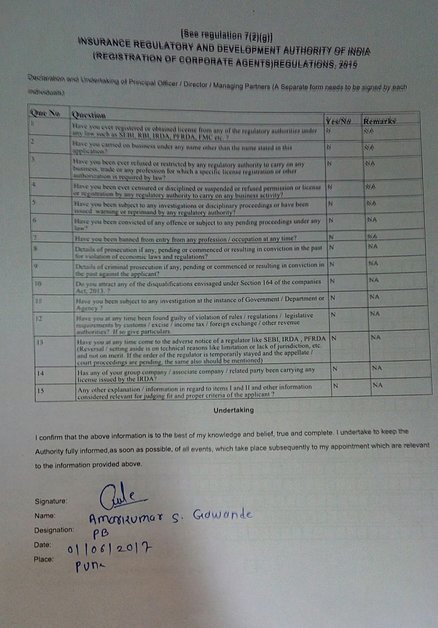 [See regulation 7(2)(g)]
INSURANCE REGULATORY AND DEVELOPMENT AUTHORITY OF INDIA
(REGISTRATION OF CORPORATE AGENTS)REGULATIONS, 2015
Declaration and Undertaking of Principal Officer / Director / Managing Partners (A Separate form needs to be signed by each
individuals)
Que No Question Yes/No Remarks
1 Have you ever registered or obtained license from any of the regulatory authorities under N NA
any law such as SEBI, RBI, IRDA, PFRDA, FMC etc. ?
2 Have you carried on business under any name other than the name stated in this N NA
application?
3 Have you been ever refused or restricted by any regulatory authority to carry on any N NA
business, trade or any profession for which a specific license registration or other
authorization is required by law?
4 Have you been ever censured or disciplined or suspended or refused permission or license N NA
or registration by any regulatory authority to carry on any business activity?
5 Have you been subject to any investigations or disciplinary proceedings or have been N NA
issued warning or reprimand by any regulatory authority?
6 Have you been convicted of any offence or subject to any pending proceedings under any N NA
law?
7 Have you been banned from entry from any profession / occupation at any time? N NA
8 Details of prosecution if any, pending or commenced or resulting in conviction in the past N NA
for violation of economic laws and regulations?
9 Details of criminal prosecution if any, pending or commenced or resulting in conviction in N NA
the past against the applicant?
10 Do you attract any of the disqualifications envisaged under Section 164 of the companies N NA
Act, 2013. ?
11 Have you been subject to any investigation at the instance of Government / Department or N NA
Agency ?
12 Have you at any time been found guilty of violation of rules / regulations / legislative N NA
requirements by customs / excise / income tax / foreign exchange / other revenue
authorities? If so give particulars
13 Have you at any time come to the adverse notice of a regulator like SEBI, IRDA , PFRDA N NA
(Reversal / setting aside is on technical reasons like limitation or lack of jurisdiction, etc.
and not on merit. If the order of the regulator is temporarily stayed and the appellate /
court proceedings are pending, the same also should be mentioned)
14 Has any of your group company / associate company / related party been carrying any N NA
license issued by the IRDA?
15 Any other explanation / information in regard to items I and II and other information N NA
considered relevant for judging fit and proper criteria of the applicant ?
Undertaking
I confirm that the above information is to the best of my knowledge and belief, true and complete. I undertake to keep the
Authority fully informed,as soon as possible, of all events, which take place subsequently to my appointment which are relevant
to the information provided above.
Signature:
Name: Amarkumar S. Gawande
Designation: PB
Date: 01/06/2017
Place: Pune